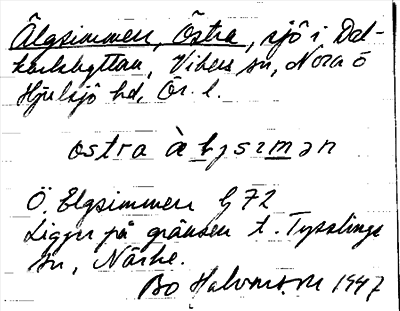 Älgsimmen, Östra, sjö i Dal-
karlshyttan, Vikers sn, Nora o
Hjulsjö hd, Ör. l.
ostra à l̲ɉsım̲ən
Ö. Elgsimmen G72
Ligger på gränsen t. Tysslinge
sn, Närke.
Bo Halvarson 1947